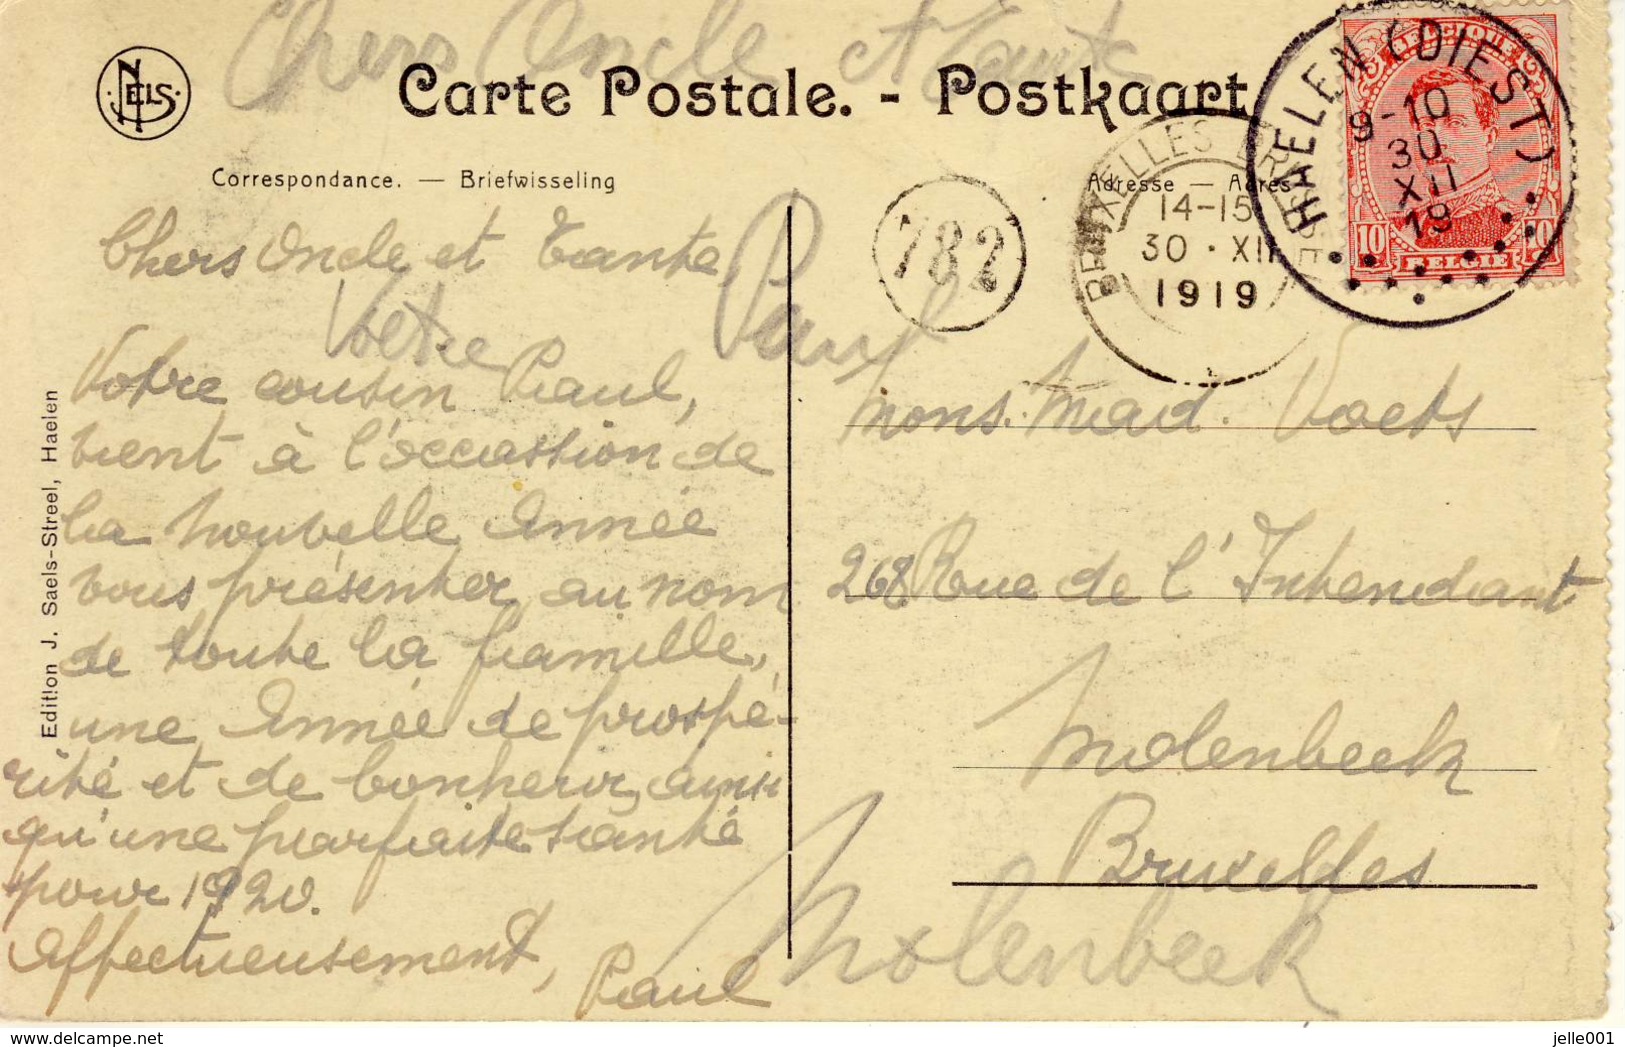 Chers Oncle et Tante
NELS
Carte Postale. - Postkaart
Correspondance. — Briefwisseling
Adresse — Adres
HAELEN (DIEST)
9-10
30
XII
19
BELGIQUE
10 10
BELGIË
BRUXELLES BRUSSEL
14-15
30 · XII
1919
782
Chers Oncle et Tante,
Votre Paul
Votre cousin Paul,
vient à l'occasion de
la nouvelle Année
vous présenter, au nom
de toute la famille,
une Année de prospé-
rité et de bonheur, ainsi
qu'une parfaite santé
pour 1920.
Affectueusement,
Paul
Mons. Mad. Voets
268 Rue de l'Intendant
Molenbeek
Bruxelles
Molenbeek
Edition J. Saels-Streel, Haelen
jelle001